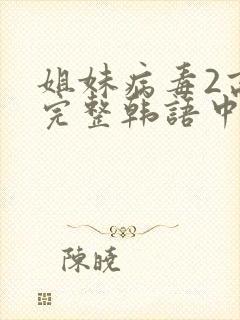 姐妹病毒2
完整韩語中
陳曉